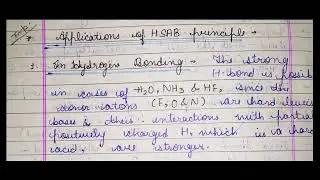 Imp:
* Applications of HSAB principle -
1. In Hydrogen Bonding - The strong
H-bond is possib
in cases of H2O, NH3 & HF, since the
donor atoms (F, O & N) are hard lewis
bases & their interactions with partial
positively charged H, which is a hard
acid, are stronger.